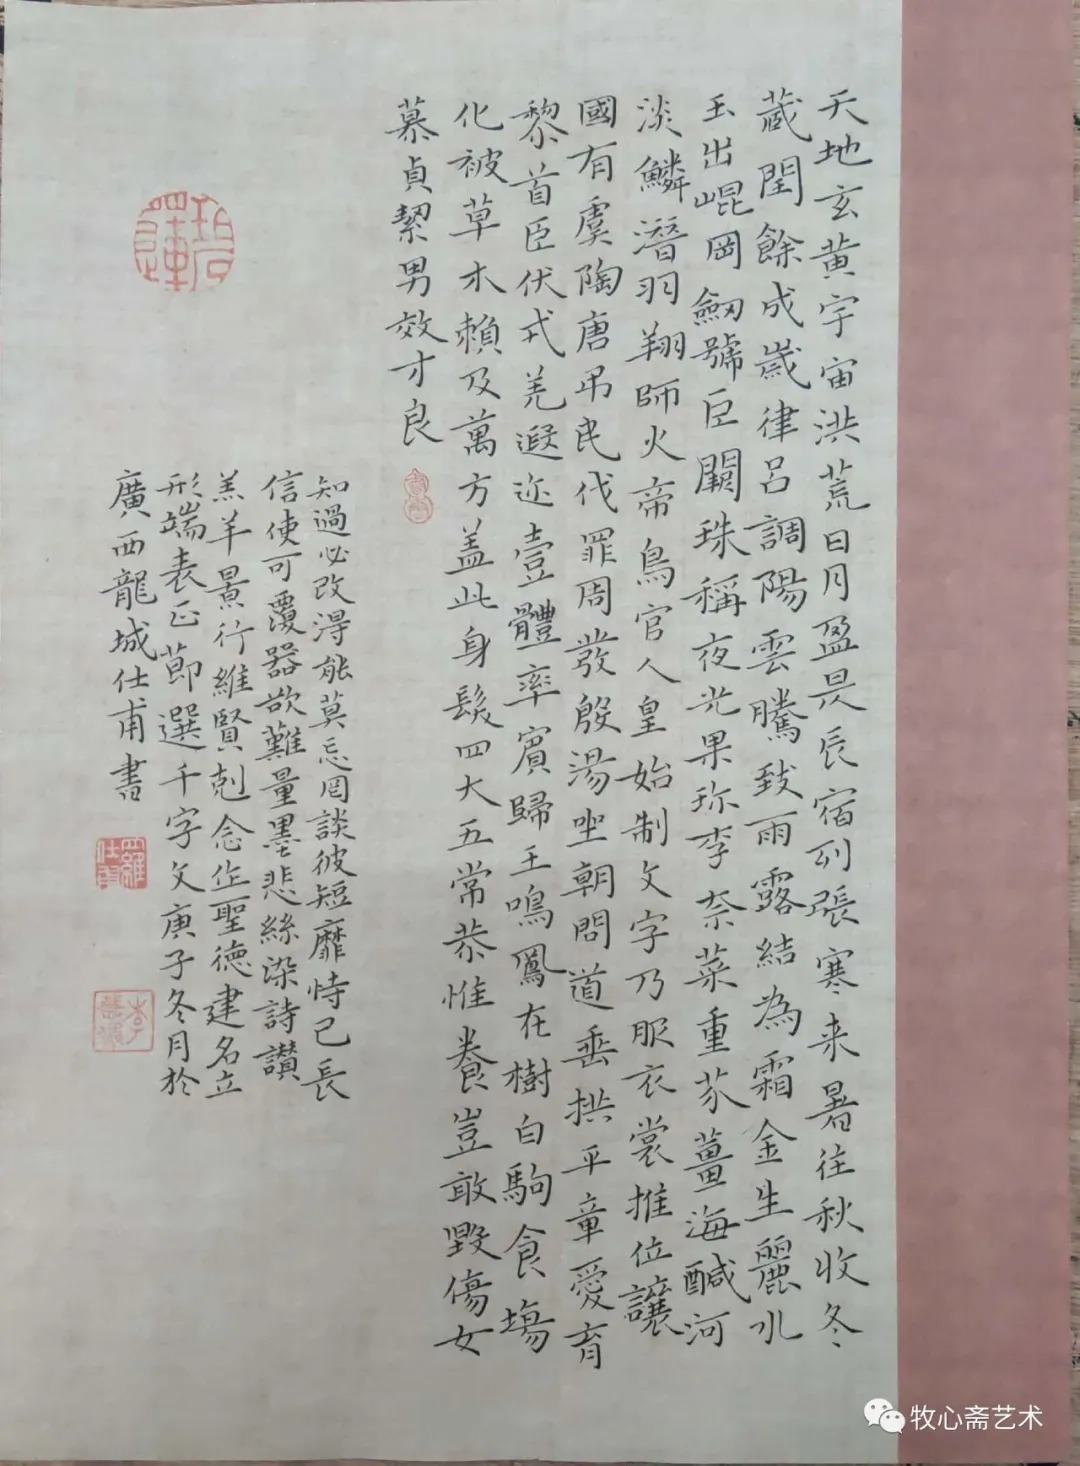 天地玄黄宇宙洪荒日月盈昃辰宿列張寒来暑往秋收冬
蔵閏餘成歲律呂調陽雲騰致雨露結為霜金生麗水
玉出崐岡劔號巨闕珠稱夜光果珎李柰菜重芥薑海鹹河
淡鱗潛羽翔師火帝鳥官人皇始制文字乃服衣裳推位讓
國有虞陶唐吊民伐罪周發殷湯坐朝問道垂拱平章愛育
黎首臣伏戎羌遐迩壹體率賓歸王鳴鳳在樹白駒食場
化被草木賴及萬方盖此身髮四大五常恭惟養豈敢毀傷女
慕貞絜男效才良
知過必改淂能莫忘罔談彼短靡恃己長
信使可覆器欲難量墨悲絲染詩讃
羔羊景行維賢剋念作聖德建名立
形端表正節選千字文庚子冬月於
廣西龍城仕甫書
羅仕甫
牧心斋艺术